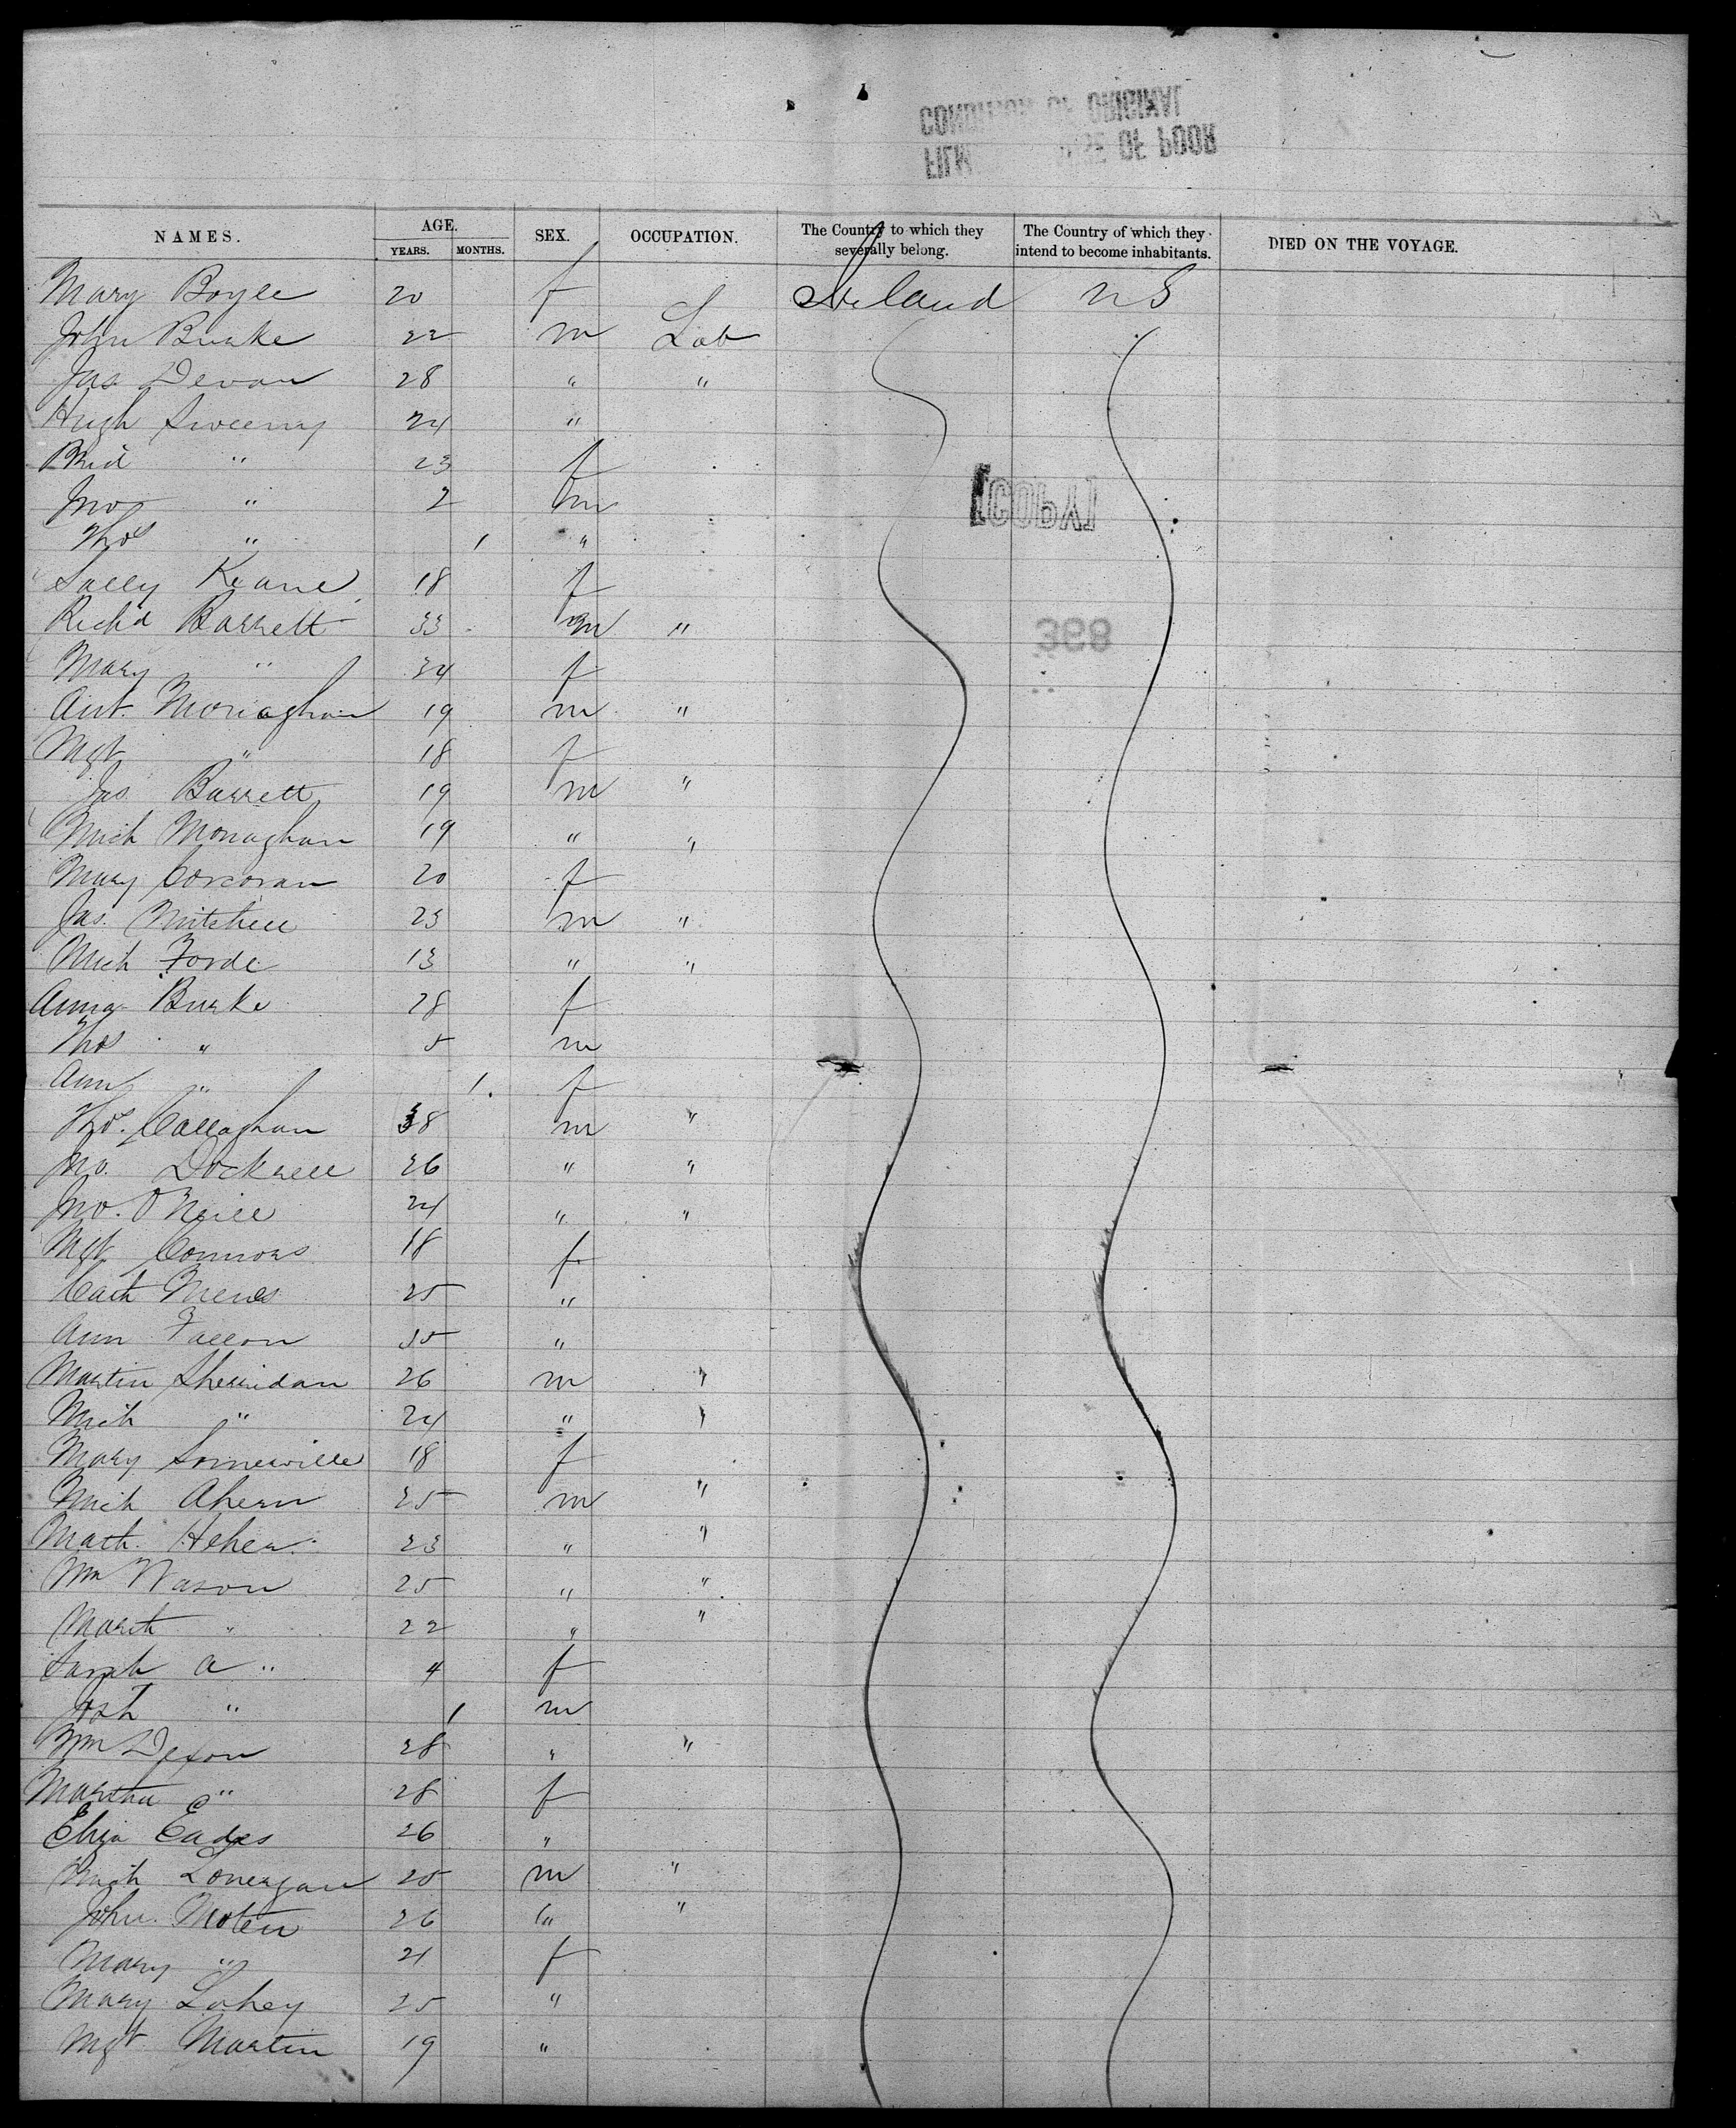 NAMES. AGE. YEARS. MONTHS. SEX. OCCUPATION. The Country to which they severally belong. The Country of which they intend to become inhabitants. DIED ON THE VOYAGE.
Mary Boyle 20 f Ireland U S
John Burke 22 m Lab
Jas Devan 28 " "
Hugh Sweeny 24 "
Brid " 23 f
Jno " 2 m
Thos " 1 "
Sally Keane 18 f
Richd Barrett 33 m "
Mary " 34 f
Ant. Monaghan 19 m "
Mgt " 18 f
Jas Barrett 19 m "
Mich Monaghan 19 " "
Mary Corcoran 20 f
Jas. Mitchell 23 m "
Mich Forde 13 " "
Anna Burke 28 f
Thos " 5 m
Ann " 1 f
Thos. Callaghan 38 m "
Jno. Dockrell 26 " "
Jno. O'Neill 24 " "
Mgt Connors 18 f
Cath 25 "
Ann Fallon 35 "
Martin Sherridan 26 m "
Mich " 24 " "
Mary Somerville 18 f
Mich Ahern 25 m "
Math. Heher 23 " "
Wm Wason 25 " "
22 " "
Sarah A " 4 f
" 1 m
Wm Dexon 28 " "
Martha " 28 f
Eliza Eades 26 "
Mich Lonergan 25 m "
John Moten 26 " "
Mary " 21 f
Mary Lahey 25 "
Mgt Martin 19 "
[COPY]
368